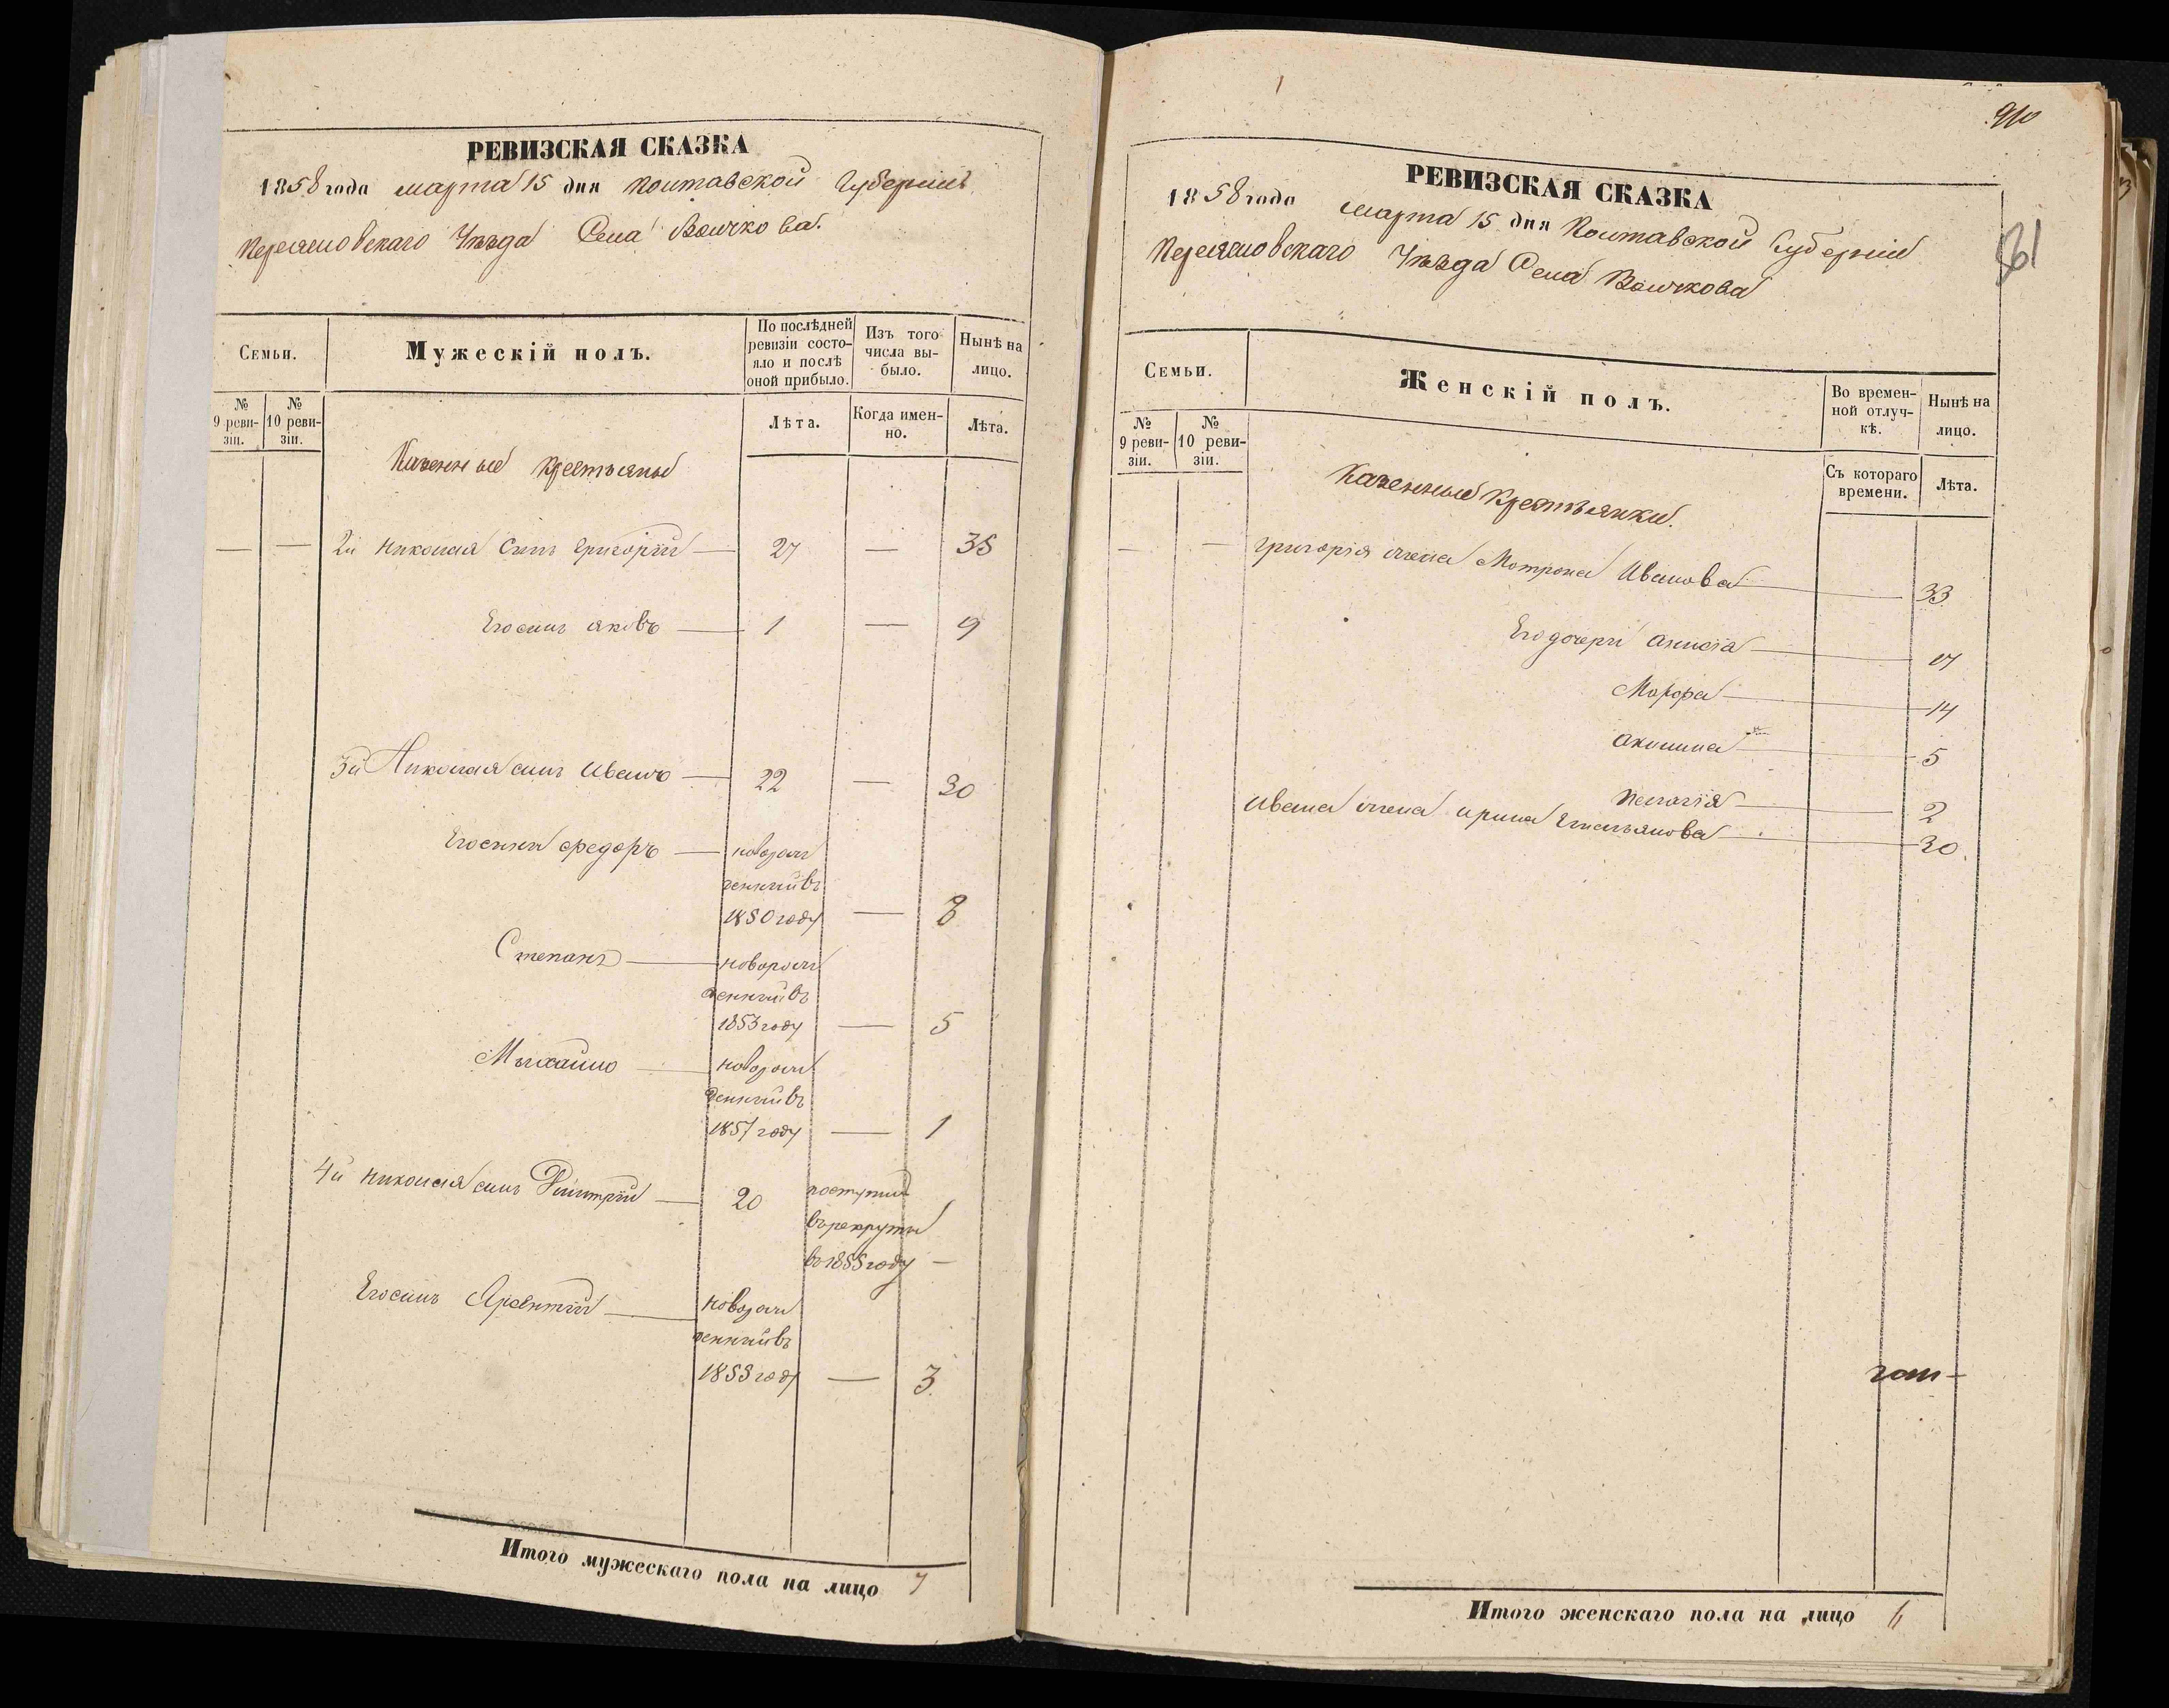 РЕВИЗСКАЯ СКАЗКА
1858 года марта 15 дня Полтавской Губерніи
Переяславскаго Уѣзда Села Вьючкова.
Семьи.
Мужескій полъ.
По послѣдней ревизіи состояло и послѣ оной прибыло.
Изъ того числа выбыло.
Нынѣ на лицо.
№ 9 ревизіи.
№ 10 ревизіи.
Лѣта.
Когда именно.
Лѣта.
Казенные крестьяне
— — 2й Николая Сынъ Григорій — 27 — 35
Его сынъ Яковъ — 1 — 9
3й Николая сынъ Иванъ — 22 — 30
Его сыны Федоръ — новорожденный въ 1850 году — 8
Степанъ — новорожденный въ 1853 году — 5
Мыхайло — новорожденный въ 1857 году — 1
4й Николая сынъ Дмитрій — 20 поступил въ рекруты во 1855 году —
Его сынъ Арсентій — новорожденный въ 1853 году — 3.
Итого мужескаго пола на лицо 7
910
61
РЕВИЗСКАЯ СКАЗКА
1858 года марта 15 дня Полтавской Губерніи
Переяславскаго Уѣзда Села Вьючкова
Семьи.
Женскій полъ.
Во временной отлучкѣ.
Нынѣ на лицо.
№ 9 ревизіи.
№ 10 ревизіи.
Съ котораго времени.
Лѣта.
Казенные Крестьянки.
— — Григорія жена Мотрона Иванова — 33
Его дочери Анисія — 17
Марфа — 14
Акилина — 5
Пелагія — 2
Ивана жена Ирина Емельянова — 30.
Итого женскаго пола на лицо 6